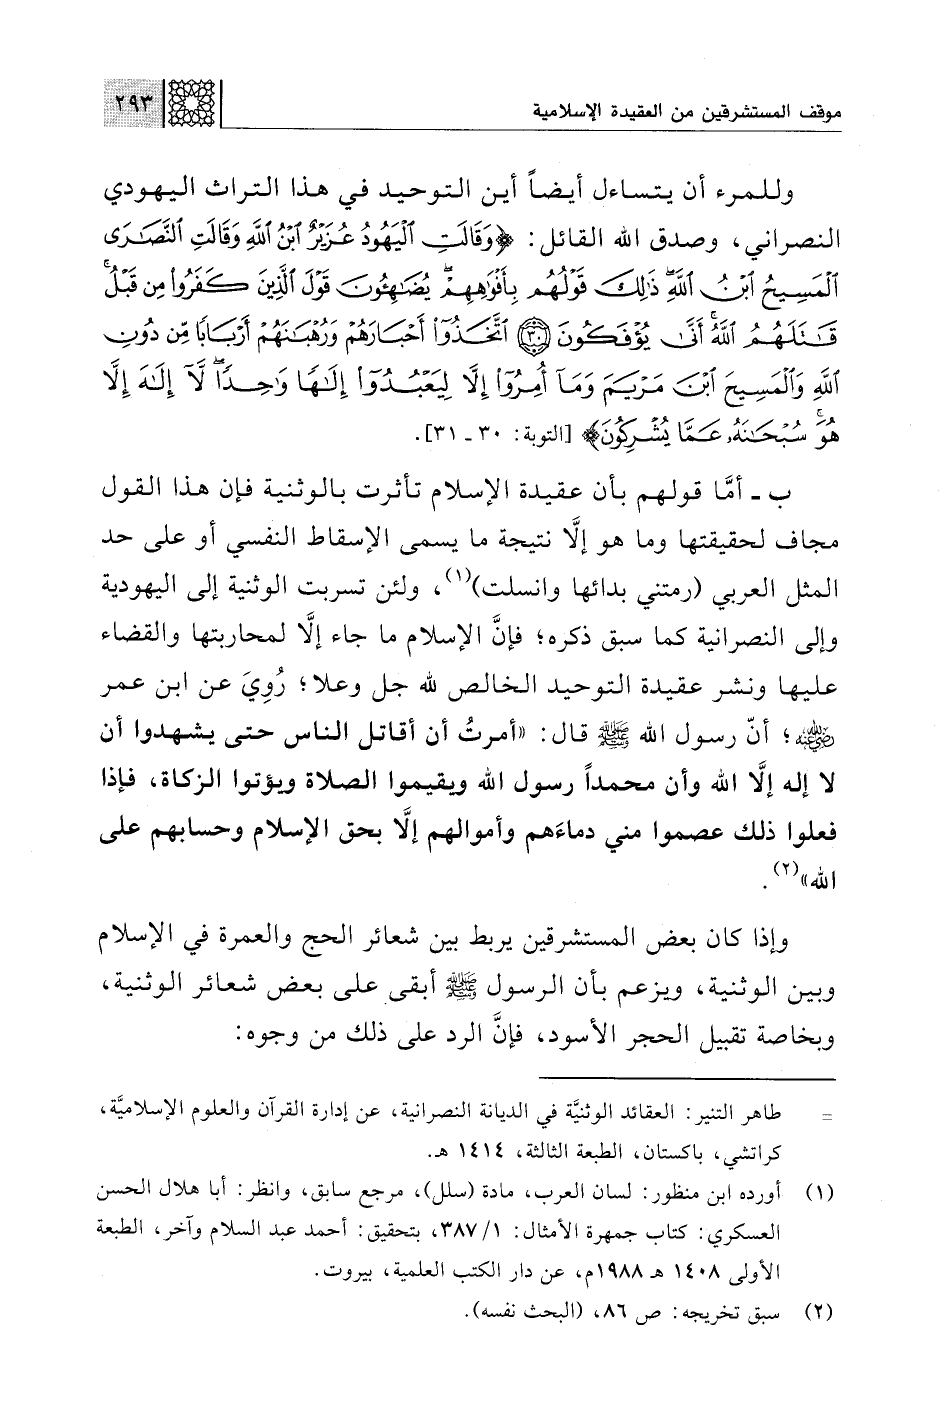 موقف المستشرقين من العقيدة الإسلامية
٢٩٣
وللمرء أن يتساءل أيضاً أين التوحيد في هذا التراث اليهودي
النصراني، وصدق الله القائل: ﴿وَقَالَتِ ٱلْيَهُودُ عُزَيْرٌ ٱبْنُ ٱللَّهِ وَقَالَتِ ٱلنَّصَٰرَى
ٱلْمَسِيحُ ٱبْنُ ٱللَّهِۖ ذَٰلِكَ قَوْلُهُم بِأَفْوَٰهِهِمْۖ يُضَٰهِـُٔونَ قَوْلَ ٱلَّذِينَ كَفَرُوا۟ مِن قَبْلُۚ
قَٰتَلَهُمُ ٱللَّهُۚ أَنَّىٰ يُؤْفَكُونَ ٣٠ ٱتَّخَذُوٓا۟ أَحْبَارَهُمْ وَرُهْبَٰنَهُمْ أَرْبَابًا مِّن دُونِ
ٱللَّهِ وَٱلْمَسِيحَ ٱبْنَ مَرْيَمَ وَمَآ أُمِرُوٓا۟ إِلَّا لِيَعْبُدُوٓا۟ إِلَٰهًا وَٰحِدًاۖ لَّآ إِلَٰهَ إِلَّا
هُوَۚ سُبْحَٰنَهُۥ عَمَّا يُشْرِكُونَ﴾ [التوبة: ٣٠ ـ ٣١].
ب ـ أمَّا قولهم بأن عقيدة الإسلام تأثرت بالوثنية فإن هذا القول
مجاف لحقيقتها وما هو إلَّا نتيجة ما يسمى الإسقاط النفسي أو على حد
المثل العربي (رمتني بدائها وانسلت)(١)، ولئن تسربت الوثنية إلى اليهودية
وإلى النصرانية كما سبق ذكره؛ فإنَّ الإسلام ما جاء إلَّا لمحاربتها والقضاء
عليها ونشر عقيدة التوحيد الخالص لله جل وعلا؛ رُوِيَ عن ابن عمر
رضي الله عنه؛ أنّ رسول الله ﷺ قال: «أمرتُ أن أقاتل الناس حتى يشهدوا أن
لا إله إلَّا الله وأن محمداً رسول الله ويقيموا الصلاة ويؤتوا الزكاة، فإذا
فعلوا ذلك عصموا مني دماءَهم وأموالهم إلَّا بحق الإسلام وحسابهم على
الله»(٢).
وإذا كان بعض المستشرقين يربط بين شعائر الحج والعمرة في الإسلام
وبين الوثنية، ويزعم بأن الرسول ﷺ أبقى على بعض شعائر الوثنية،
وبخاصة تقبيل الحجر الأسود، فإنَّ الرد على ذلك من وجوه:
= طاهر التنير: العقائد الوثنيَّة في الديانة النصرانية، عن إدارة القرآن والعلوم الإسلاميَّة،
كراتشي، باكستان، الطبعة الثالثة، ١٤١٤ هـ.
(١) أورده ابن منظور: لسان العرب، مادة (سلل)، مرجع سابق، وانظر: أبا هلال الحسن
العسكري: كتاب جمهرة الأمثال: ٣٨٧/١، بتحقيق: أحمد عبد السلام وآخر، الطبعة
الأولى ١٤٠٨ هـ ١٩٨٨م، عن دار الكتب العلمية، بيروت.
(٢) سبق تخريجه: ص ٨٦، (البحث نفسه).